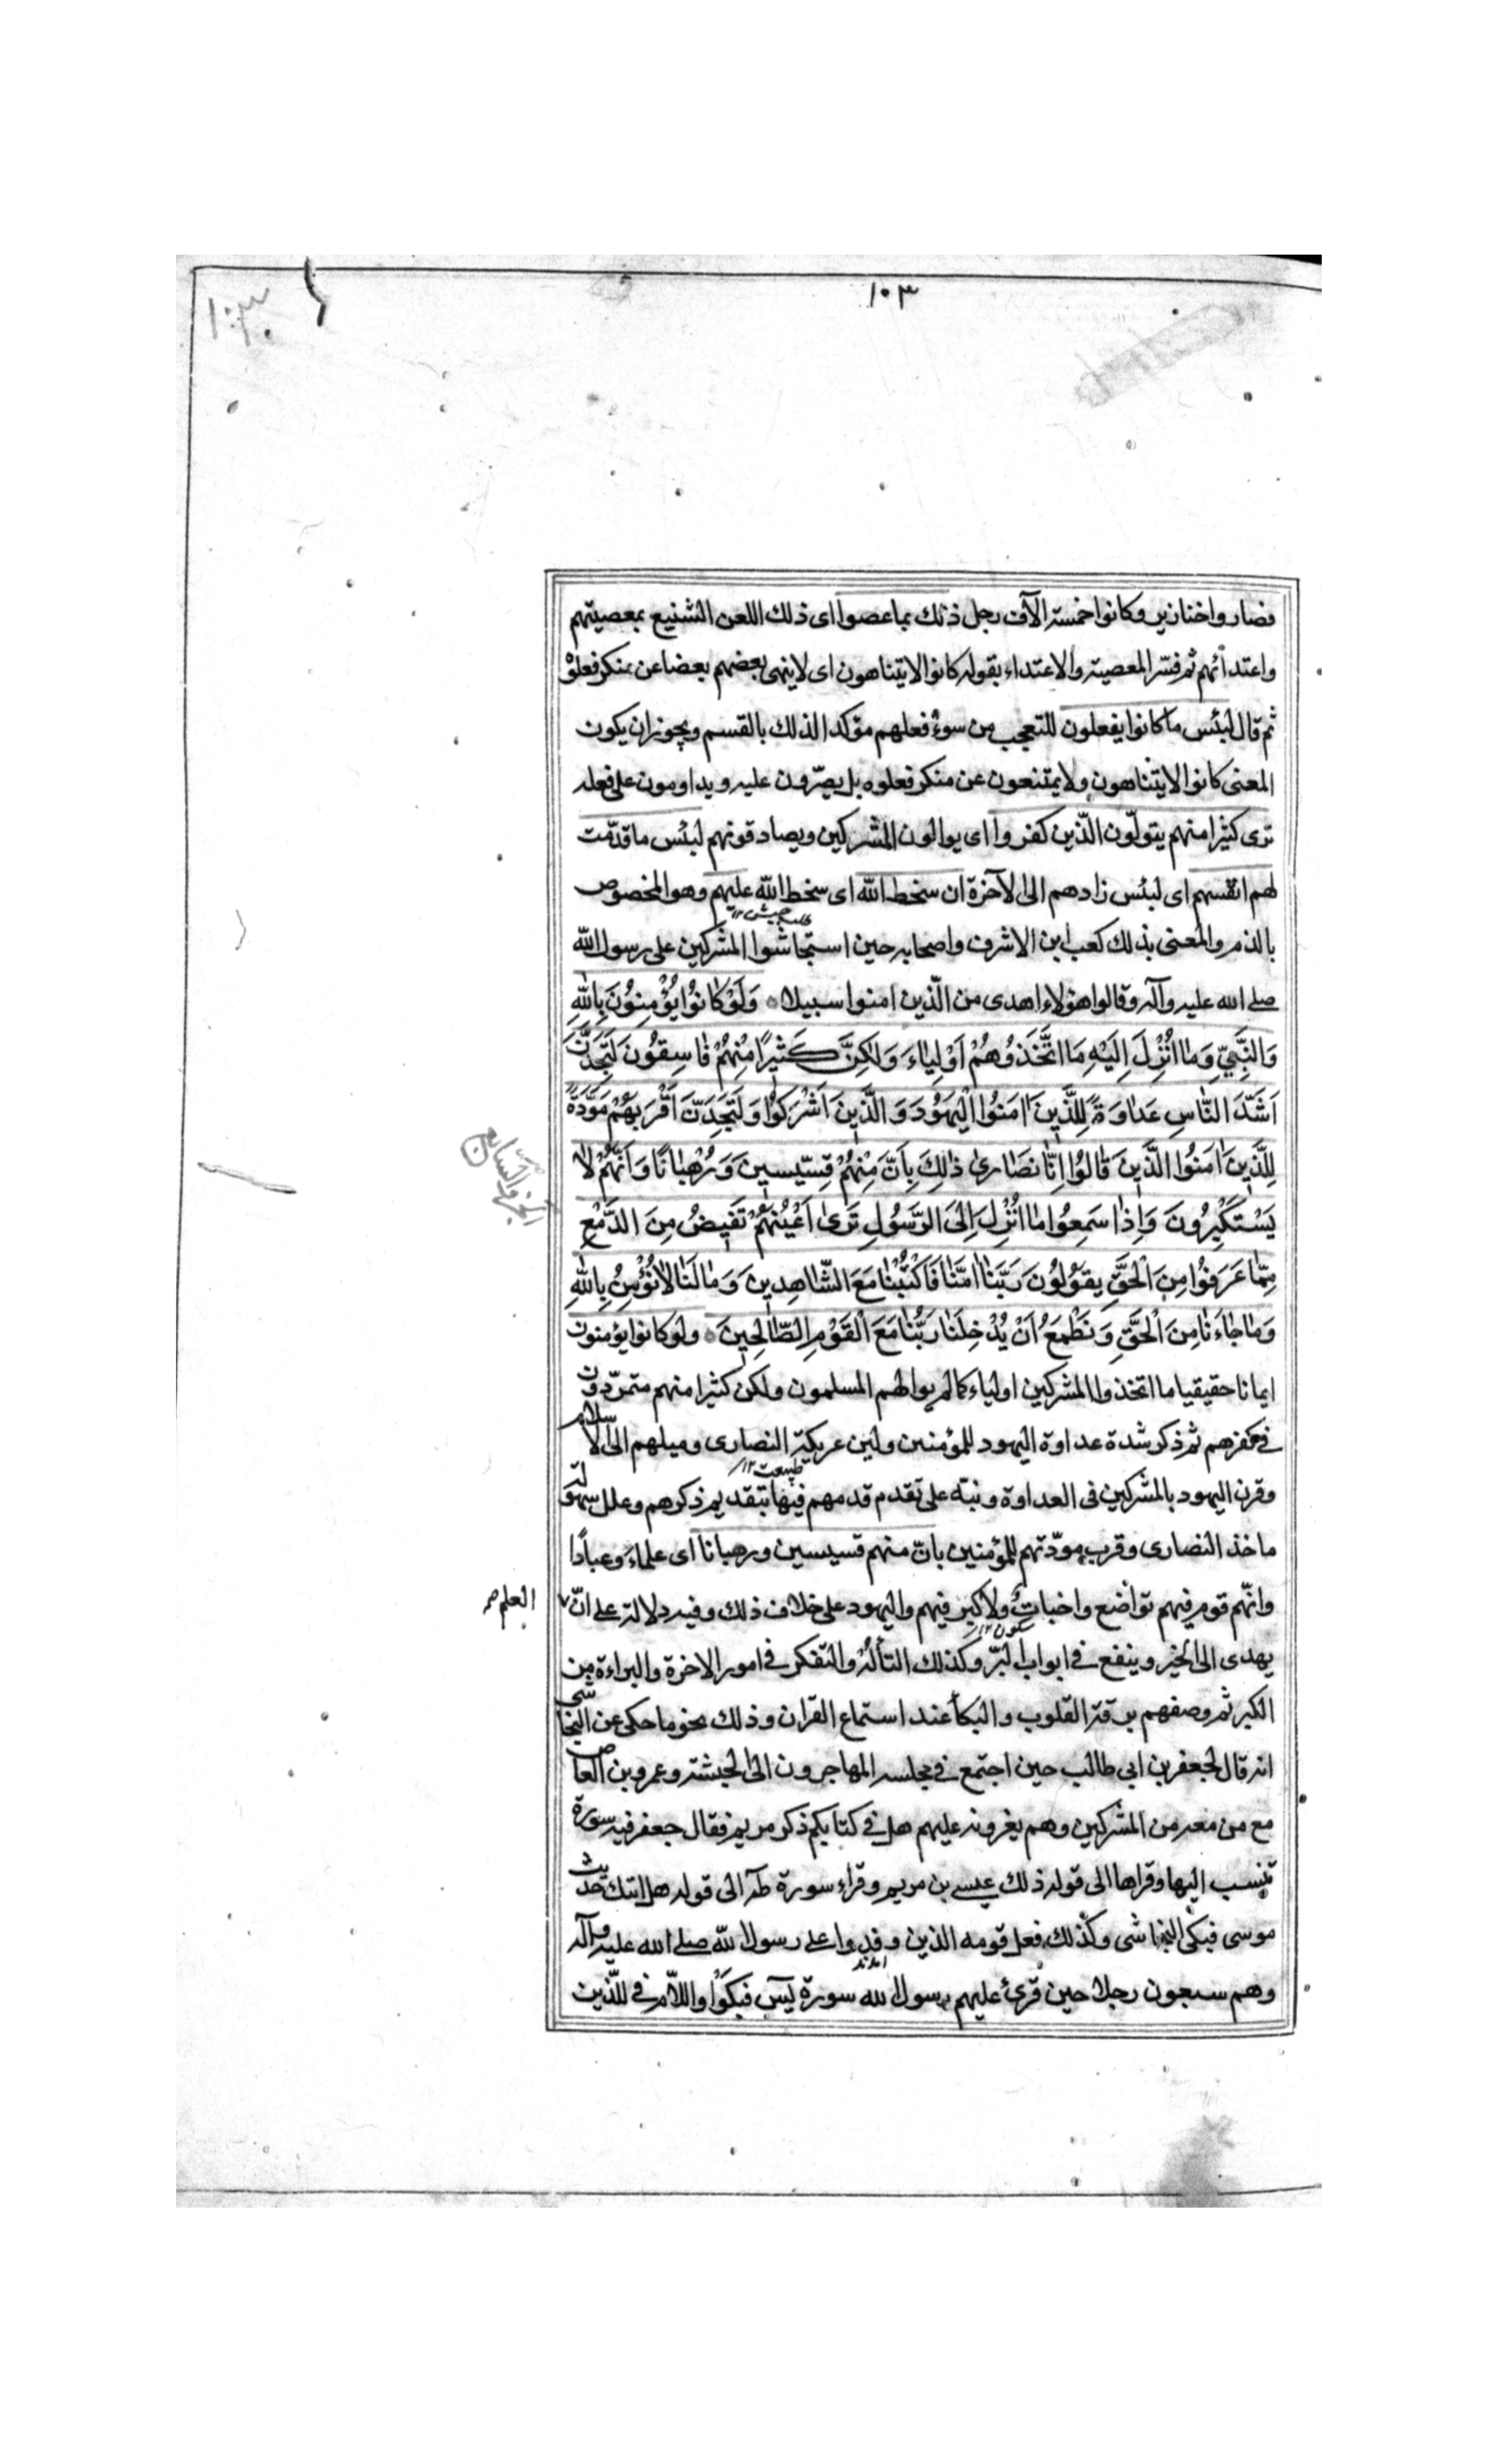 ١٠٣
١٠٣
فصاروا خنازير وكانوا خمسة الآف رجل ذلك بما عصوا اى ذلك اللعن الشنيع بمعصيتهم
واعتدائهم ثم فسّر المعصية والاعتداء بقوله كانوا لا يتناهون اى لا ينهى بعضهم بعضا عن منكر فعلوه
ثم قال لبئس ما كانوا يفعلون للتعجب من سوء فعلهم مؤكدا لذلك بالقسم ويجوز ان يكون
المعنى كانوا لا يتناهون ولا يمتنعون عن منكر فعلوه بل يصرّون عليه ويداومون على فعله
ترى كثيرا منهم يتولّون الّذين كفروا اى يوالون المشركين ويصادقونهم لبئس ما قدّمت
لهم انفسهم اى لبئس زادهم الى الآخرة ان سخط الله اى سخط الله عليهم وهو المخصوص
بالذم والمعنى بذلك كعب ابن الاشرف واصحابه حين استجاشوا المشركين على رسول الله
صلى الله عليه وآله وقالوا هؤلاء اهدى من الّذين امنوا سبيلا ٥ وَلَوْ كَانُوا يُؤْمِنُونَ بِاللّهِ
وَالنَّبِيِّ وَمَا اُنْزِلَ اِلَيْهِ مَا اتَّخَذُوهُمْ اَوْلِيَاءَ وَلٰكِنَّ كَثِيرًا مِنْهُمْ فَاسِقُونَ لَتَجِدَنَّ
اَشَدَّ النَّاسِ عَدَاوَةً لِلَّذِينَ اٰمَنُوا الْيَهُودَ وَالَّذِينَ اَشْرَكُوا وَلَتَجِدَنَّ اَقْرَبَهُمْ مَوَدَّةً
لِلَّذِينَ اٰمَنُوا الَّذِينَ قَالُوا اِنَّا نَصَارىٰ ذٰلِكَ بِاَنَّ مِنْهُمْ قِسِّيسِينَ وَرُهْبَانًا وَاَنَّهُمْ لَا
يَسْتَكْبِرُونَ وَاِذَا سَمِعُوا مَا اُنْزِلَ اِلَى الرَّسُولِ تَرىٰ اَعْيُنَهُمْ تَفِيضُ مِنَ الدَّمْعِ
مِمَّا عَرَفُوا مِنَ الْحَقِّ يَقُولُونَ رَبَّنَا اٰمَنَّا فَاكْتُبْنَا مَعَ الشَّاهِدِينَ وَمَا لَنَا لَا نُؤْمِنُ بِاللّهِ
وَمَا جَاءَنَا مِنَ الْحَقِّ وَنَطْمَعُ اَنْ يُدْخِلَنَا رَبُّنَا مَعَ الْقَوْمِ الصَّالِحِينَ ٥ ولو كانوا يؤمنون
ايمانا حقيقيا ما اتخذوا المشركين اولياء كما لم يوالهم المسلمون ولكن كثيرا منهم متمرّدون
فى كفرهم ثم ذكر شدة عداوة اليهود للمؤمنين ولين عريكة النصارى وميلهم الى الاسلام
طبيعت ١٢
وقرن اليهود بالمشركين فى العداوة ونبّه على تقدم قدمهم فيها بتقديم ذكرهم وعلل سهولة
ماخذ النصارى وقرب مودّتهم للمؤمنين بانّ منهم قسيسين ورهبانا اى علماء وعبادًا
وانّهم قوم فيهم تواضع واخبات ولا كبر فيهم واليهود على خلاف ذلك وفيه دلالة على انّ
العلم
سكون ١٢
يهدى الى الخير وينفع فى ابواب البرّ وكذلك التألّه والتفكر فى امور الاخرة والبراءة من
الكبر ثم وصفهم برقة القلوب والبكأ عند استماع القران وذلك نحو ما حكى عن النجاشى
انه قال لجعفر بن ابى طالب حين اجتمع فى مجلسه المهاجرون الى الحبشة وعمرو بن العاص
مع من معه من المشركين وهم يغرونه عليهم هل فى كتابكم ذكر مريم فقال جعفر فيه سورة
تنسب اليها وقراها الى قوله ذلك عيسى بن مريم وقراء سورة طه الى قوله هل اتك حديث
موسى فبكى النجاشى وكذلك فعل قومه الذين وفدوا على رسول الله صلى الله عليه وآله
وهم سبعون رجلا حين قرئ عليهم رسول الله سورة يس فبكوا واللام فى للذين